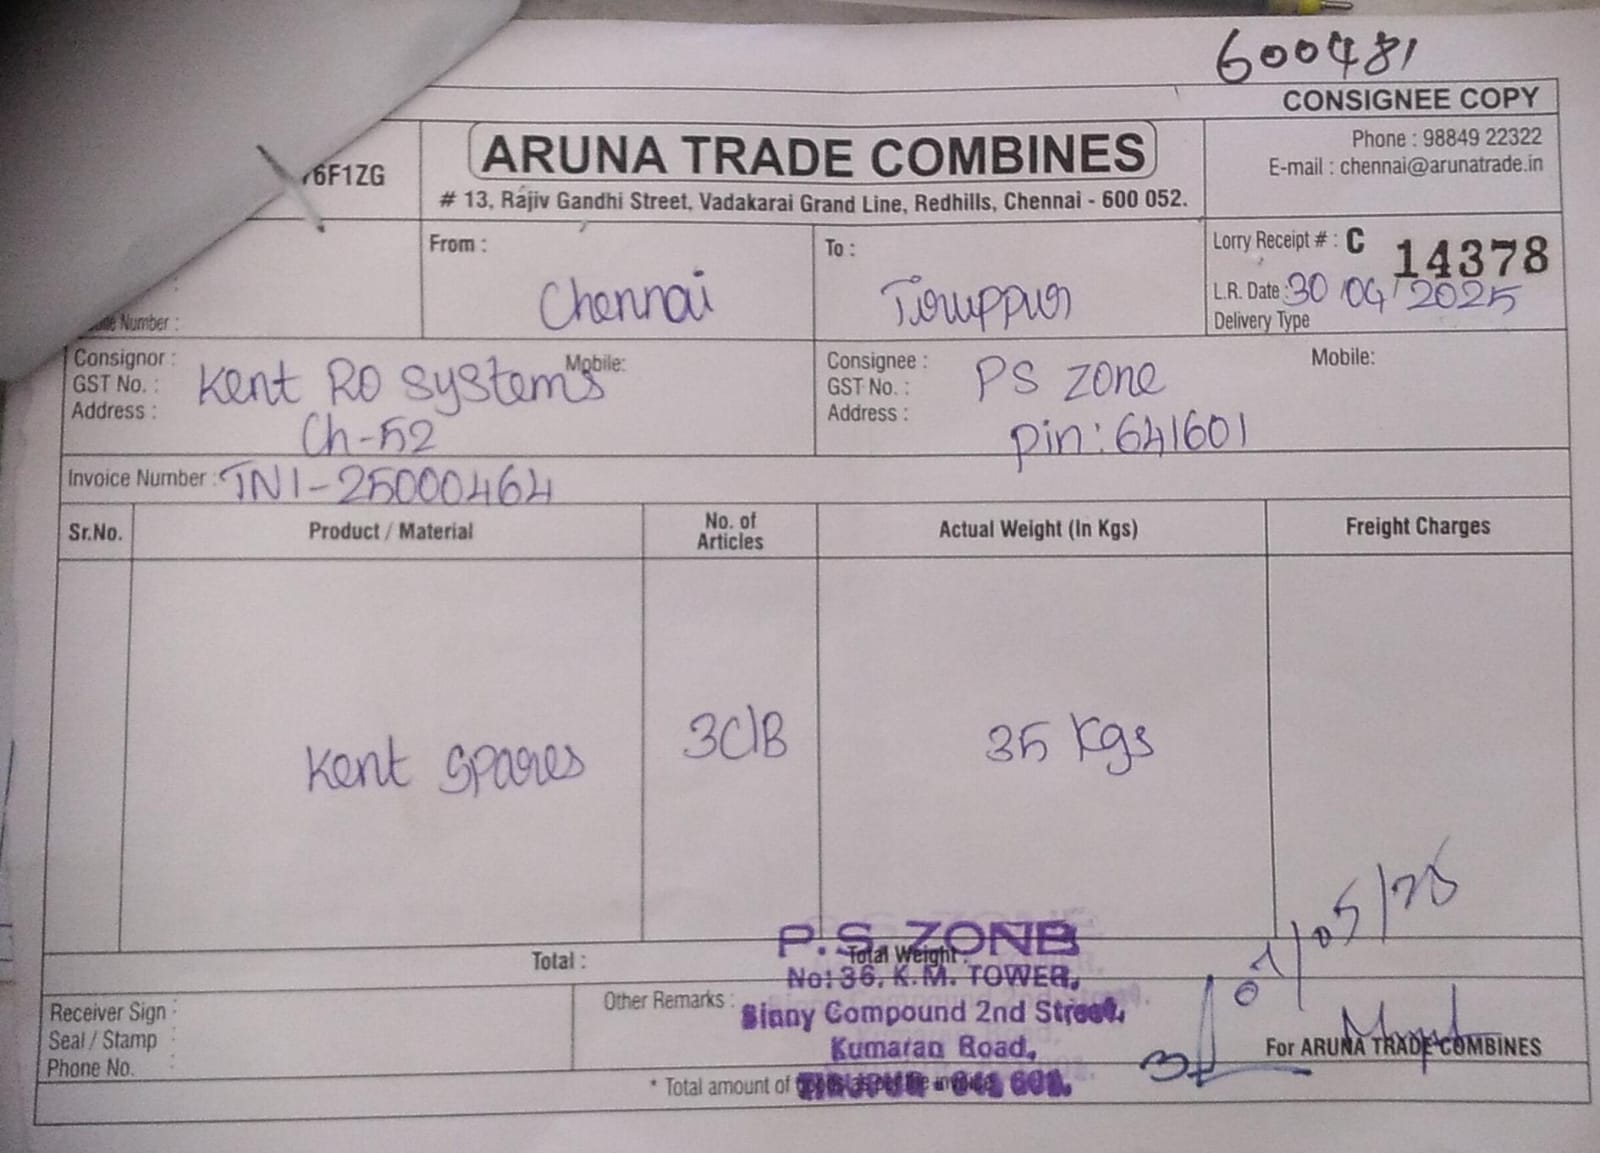 600481
CONSIGNEE COPY
6F1ZG
ARUNA TRADE COMBINES
# 13, Rajiv Gandhi Street, Vadakarai Grand Line, Redhills, Chennai - 600 052.
Phone : 98849 22322
E-mail : chennai@arunatrade.in
Number :
From :
Chennai
To :
Tiruppur
Lorry Receipt # : C 14378
L.R. Date : 30/04/2025
Delivery Type
Consignor : Kent RO Systems Mobile:
GST No. :
Address : Ch-52
Consignee : PS Zone Mobile:
GST No. :
Address : Pin: 641601
Invoice Number : TN1-25000464
Sr.No. Product / Material No. of Articles Actual Weight (In Kgs) Freight Charges
Kent Spares 3C/B 35 Kgs
Total : Total Weight :
P.S. ZONE
No: 36, K.M. TOWER,
Binny Compound 2nd Street,
Kumaran Road,
Receiver Sign :
Seal / Stamp :
Phone No. :
Other Remarks :
/05/25
For ARUNA TRADE COMBINES
* Total amount of goods as per the invoice